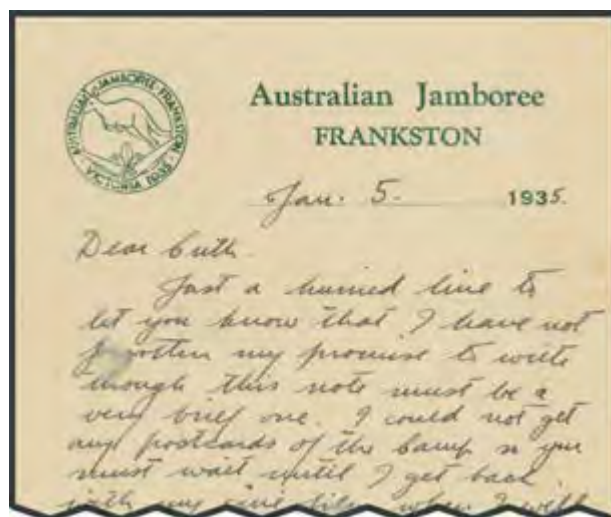 AUSTRALIAN JAMBOREE FRANKSTON
VICTORIA 1935
Australian Jamboree
FRANKSTON
Jan. 5. 1935.
Dear Cuth.
Just a hurried line to
let you know that I have not
forgotten my promise to write
though this note must be a
very brief one. I could not get
any postcards of the Camp so you
must wait until I get back
with my when I will